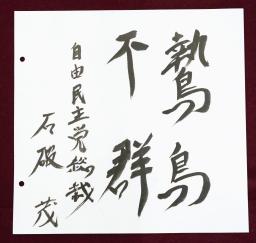 鷙鳥
不群
自由民主党総裁
石破 茂